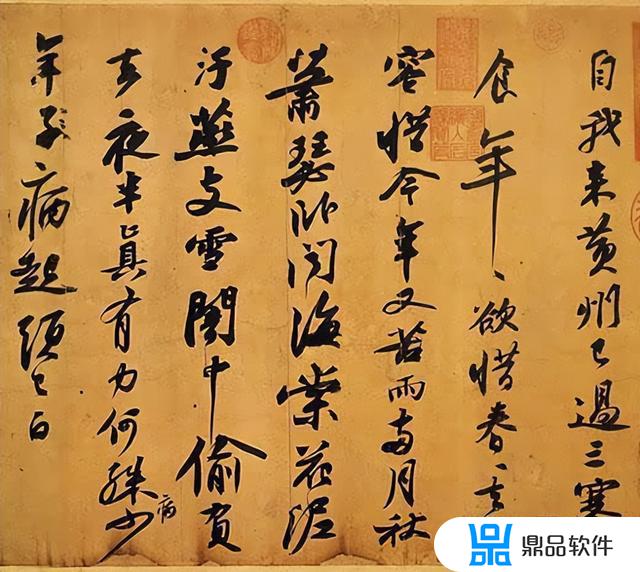 自我来黄州已過三寒
食年〻欲惜春〻去
容惜今年又苦雨兩月秋
蕭瑟卧聞海棠花泥
汙燕支雪闇中偷負
去夜半真有力何殊少
病
年子病起頭已白
鼎品软件